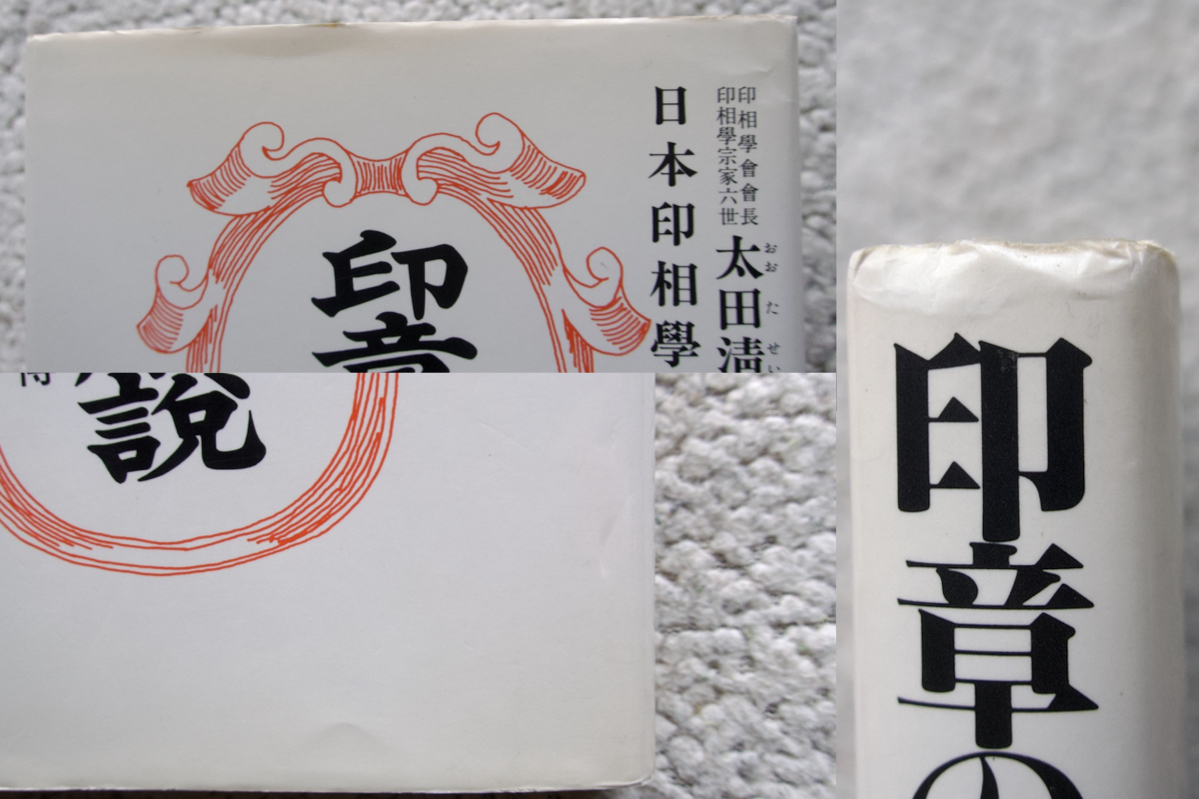 印相學會會長
印相學宗家六世
太田清
おおた せい
日本印相學
印章
説
印章の